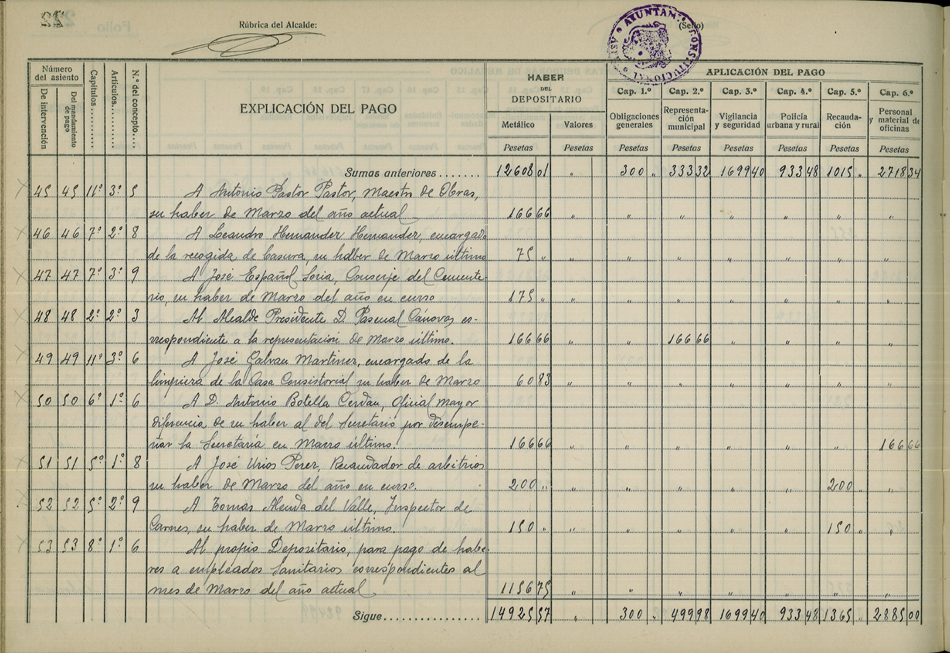 Rúbrica del Alcalde:
(Sello)
AYUNTAM CONSTITUCIONAL
Número del asiento
De intervención
Del mandamiento de pago
Capítulos
Artículos
N.º del concepto
EXPLICACIÓN DEL PAGO
HABER DEL DEPOSITARIO
Metálico
Valores
APLICACIÓN DEL PAGO
Cap. 1.º Cap. 2.º Cap. 3.º Cap. 4.º Cap. 5.º Cap. 6.º
Obligaciones generales
Representación municipal
Vigilancia y seguridad
Policía urbana y rural
Recaudación
Personal y material de oficinas
Pesetas Pesetas Pesetas Pesetas Pesetas Pesetas Pesetas Pesetas
Sumas anteriores 12608 01 " 300 " 333 32 1699 40 933 48 1015 " 2718 34
45 45 11º 3º 5 A Antonio Pastor Pastor, Maestro de Obras,
su haber de Marzo del año actual 166 66 " " " " " " "
46 46 7º 2º 8 A Leandro Hernander Hernander, encargado
de la recogida de basura, su haber de Marzo último 75 " " " " " " " "
47 47 7º 3º 9 A José Español Soria, Conserje del Cemente-
rio, su haber de Marzo del año en curso 175 " " " " " " " "
48 48 2º 2º 3 Al Alcalde Presidente D. Pascual Cánovas co-
rrespondiente a la representación de Marzo último. 166 66 " " 166 66 " " " "
49 49 11º 3º 6 A José Galvan Martiner, encargado de la
limpieza de la Casa Consistorial su haber de Marzo 60 83 " " " " " " "
50 50 6º 1º 6 A D. Antonio Botella Cerdán, Oficial Mayor
diferencia de su haber al del Secretario por desempe-
ñar la Secretaría en Marzo último. 166 66 " " " " " " 166 66
51 51 5º 1º 8 A José Urios Perer, Recaudador de arbitrios
su haber de Marzo del año en curso. 200 " " " " " " 200 " "
52 52 5º 2º 9 A Tomas Alenda del Valle, Inspector de
Carnes, su haber de Marzo último. 150 " " " " " " 150 " "
53 53 8º 1º 6 Al propio Depositario, para pago de habe-
res a empleados Sanitarios correspondientes al
mes de Marzo del año actual 1156 75 " " " " " " "
Sigue 14925 57 " 300 " 499 98 1699 40 933 48 1365 " 2885 00